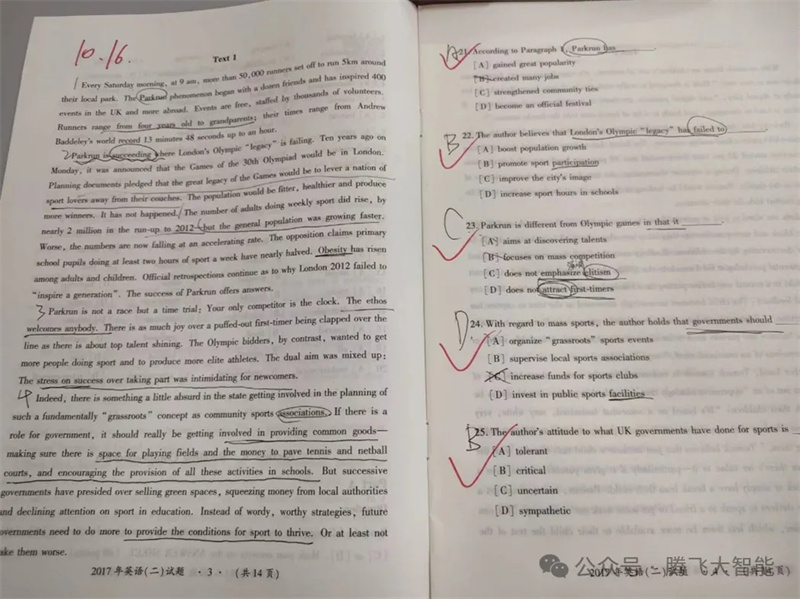 10.16.
Text 1
1 Every Saturday morning, at 9 am, more than 50,000 runners set off to run 5km around
their local park. The Parkrun phenomenon began with a dozen friends and has inspired 400
events in the UK and more abroad. Events are free, staffed by thousands of volunteers.
Runners range from four years old to grandparents; their times range from Andrew
Baddeley's world record 13 minutes 48 seconds up to an hour.
2 Parkrun is succeeding where London's Olympic "legacy" is failing. Ten years ago on
Monday, it was announced that the Games of the 30th Olympiad would be in London.
Planning documents pledged that the great legacy of the Games would be to lever a nation of
sport lovers away from their couches. The population would be fitter, healthier and produce
more winners. It has not happened. The number of adults doing weekly sport did rise, by
nearly 2 million in the run-up to 2012—but the general population was growing faster.
Worse, the numbers are now falling at an accelerating rate. The opposition claims primary
school pupils doing at least two hours of sport a week have nearly halved. Obesity has risen
among adults and children. Official retrospections continue as to why London 2012 failed to
"inspire a generation". The success of Parkrun offers answers.
3 Parkrun is not a race but a time trial; Your only competitor is the clock. The ethos
welcomes anybody. There is as much joy over a puffed-out first-timer being clapped over the
line as there is about top talent shining. The Olympic bidders, by contrast, wanted to get
more people doing sport and to produce more elite athletes. The dual aim was mixed up:
The stress on success over taking part was intimidating for newcomers.
4 Indeed, there is something a little absurd in the state getting involved in the planning of
such a fundamentally "grassroots" concept as community sports associations. If there is a
role for government, it should really be getting involved in providing common goods—
making sure there is space for playing fields and the money to pave tennis and netball
courts, and encouraging the provision of all these activities in schools. But successive
governments have presided over selling green spaces, squeezing money from local authorities
and declining attention on sport in education. Instead of wordy, worthy strategies, future
overnments need to do more to provide the conditions for sport to thrive. Or at least not
ake them worse.
2017 年英语(二)试题 · 3 · (共14页)
A 21. According to Paragraph 1, Parkrun has
[A] gained great popularity
[B] created many jobs
[C] strengthened community ties
[D] become an official festival
B 22. The author believes that London's Olympic "legacy" has failed to
[A] boost population growth
[B] promote sport participation
[C] improve the city's image
[D] increase sport hours in schools
C 23. Parkrun is different from Olympic games in that it
[A] aims at discovering talents
[B] focuses on mass competition
[C] does not emphasize elitism
[D] does not attract first-timers
D 24. With regard to mass sports, the author holds that governments should
[A] organize "grassroots" sports events
[B] supervise local sports associations
[C] increase funds for sports clubs
[D] invest in public sports facilities
B 25. The author's attitude to what UK governments have done for sports is
[A] tolerant
[B] critical
[C] uncertain
[D] sympathetic
2017 年英语(二)试题 · 4 · (共14页)
公众号 · 腾飞大智能